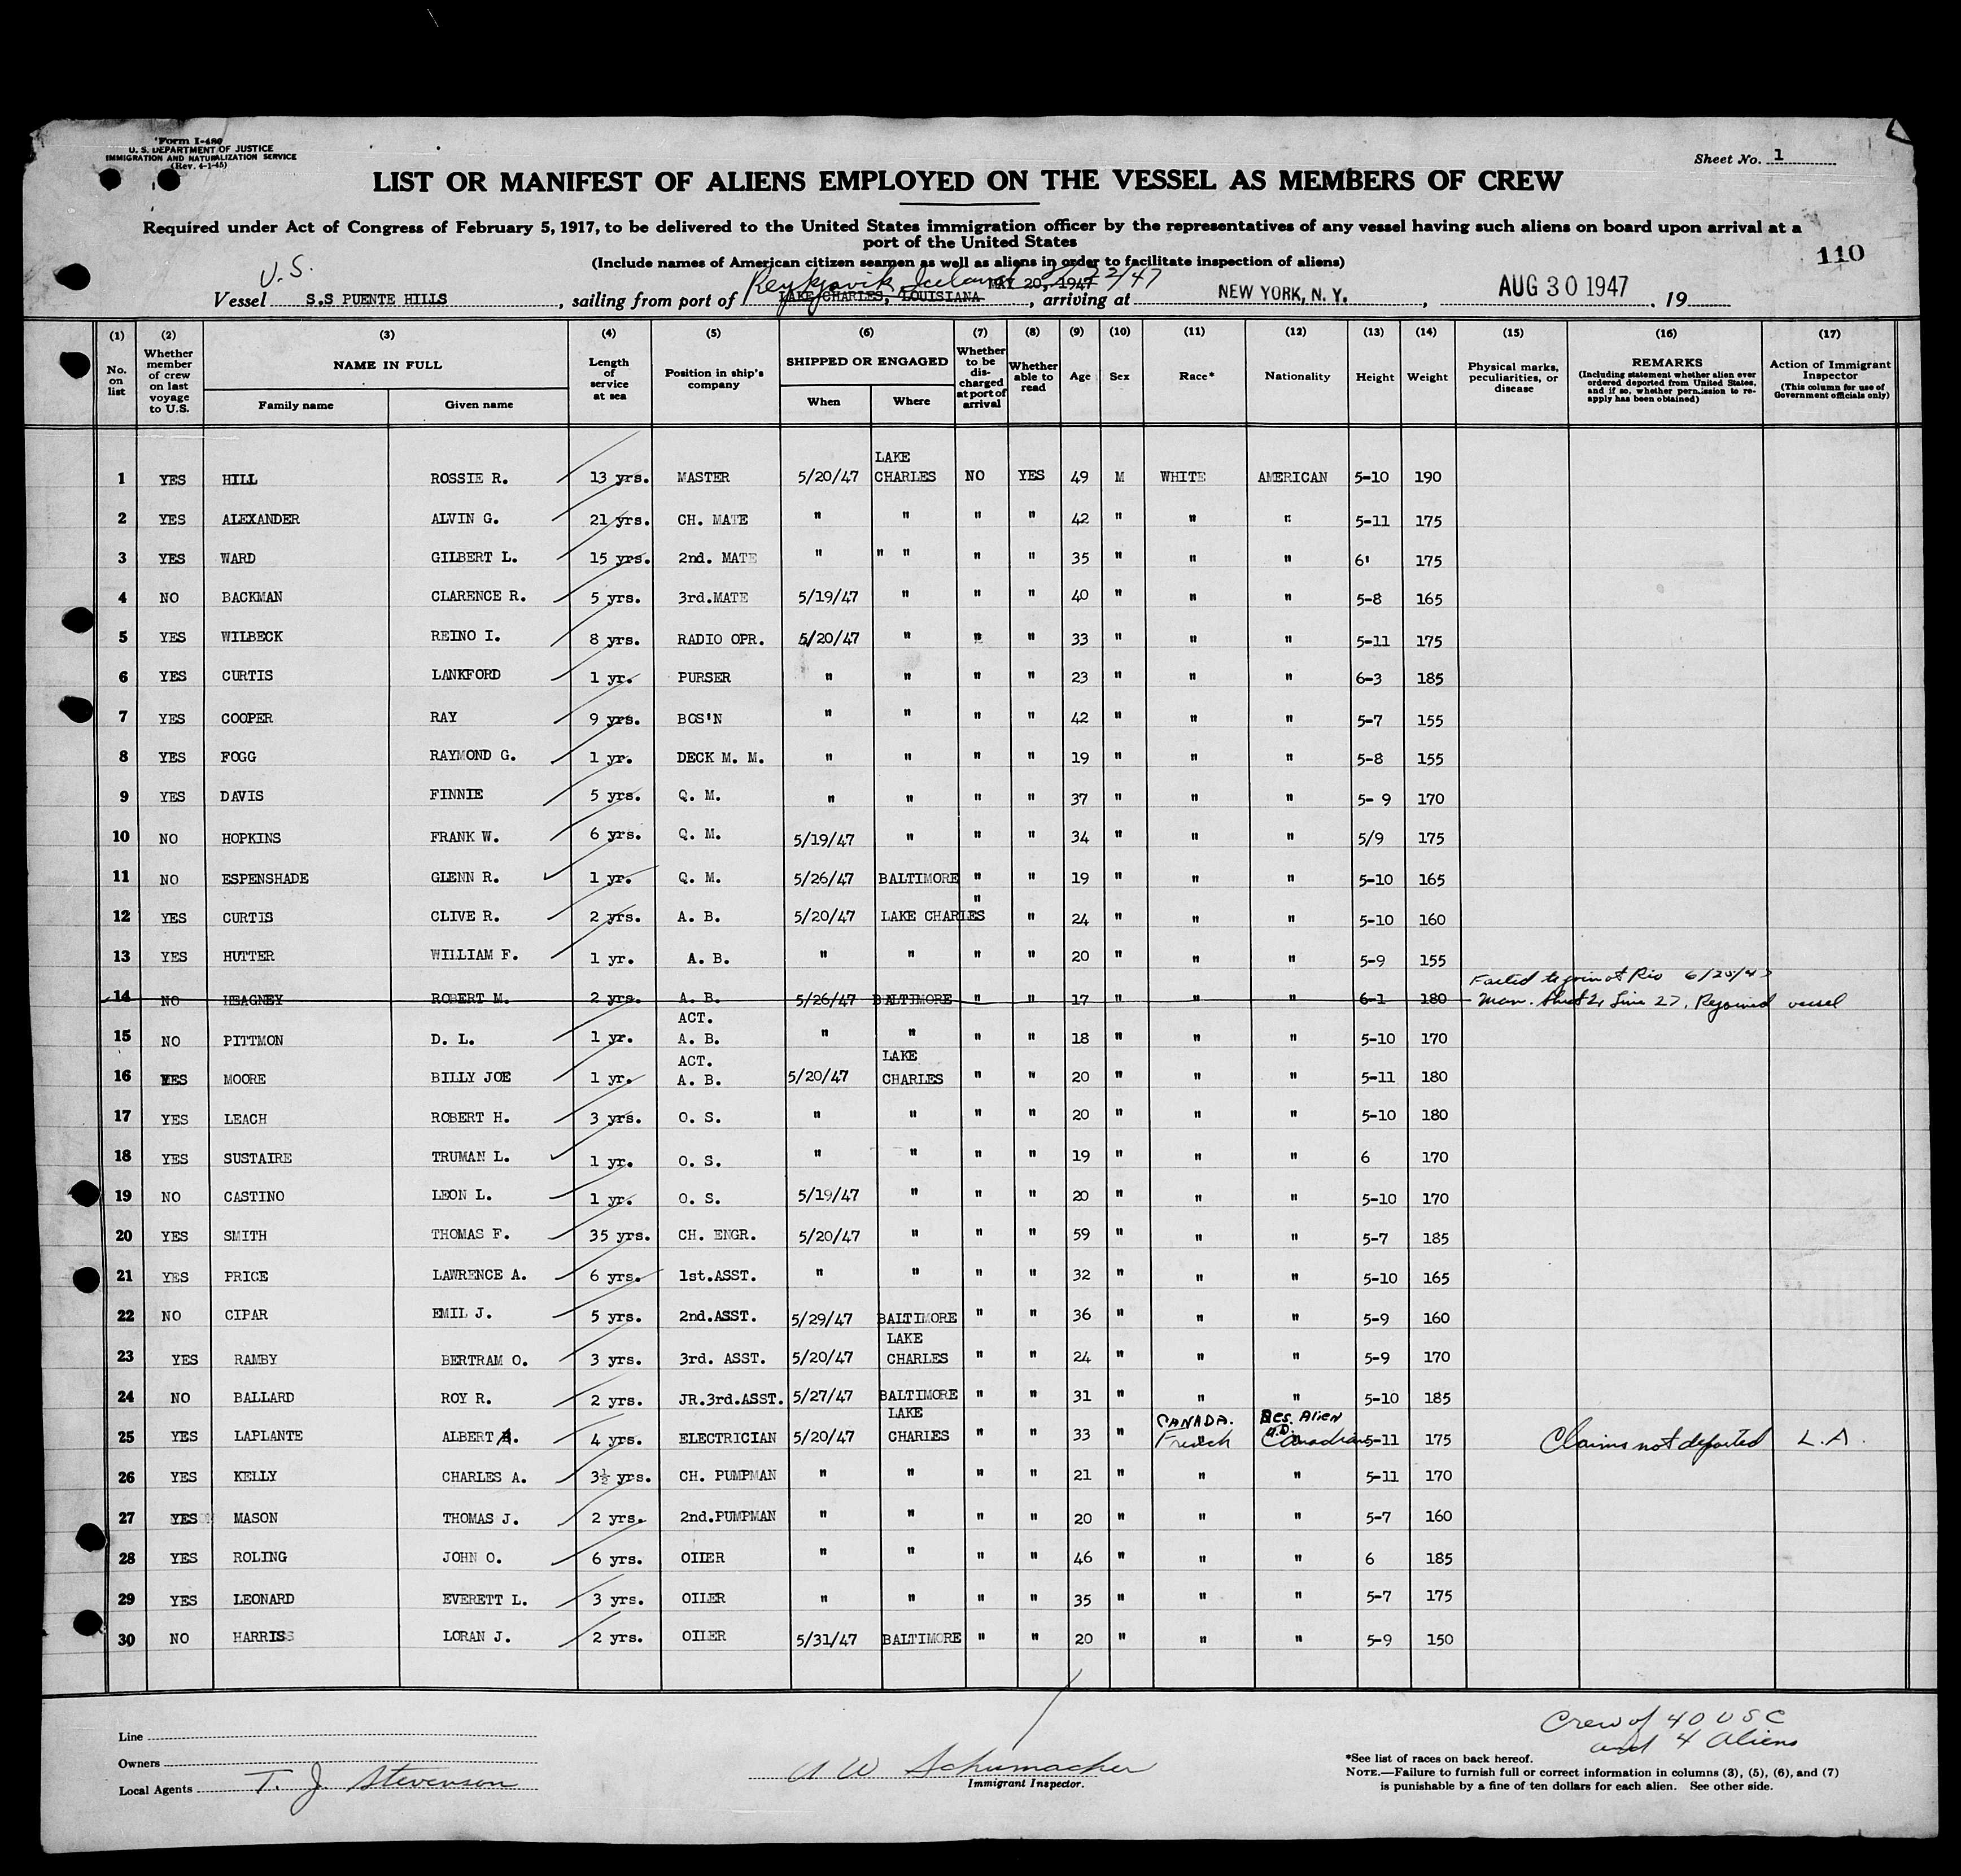 Form I-480
U. S. DEPARTMENT OF JUSTICE
IMMIGRATION AND NATURALIZATION SERVICE
(Rev. 4-1-45)
Sheet No. 1
LIST OR MANIFEST OF ALIENS EMPLOYED ON THE VESSEL AS MEMBERS OF CREW
Required under Act of Congress of February 5, 1917, to be delivered to the United States immigration officer by the representatives of any vessel having such aliens on board upon arrival at a
port of the United States
110
(Include names of American citizen seamen as well as aliens in order to facilitate inspection of aliens)
U.S. Reykjavik Iceland 22/47
Vessel S.S PUENTE HILLS, sailing from port of LAKE CHARLES, LOUISIANA MAY 20, 1947, arriving at NEW YORK, N. Y., AUG 30 1947, 19
(1) (2) (3) (4) (5) (6) (7) (8) (9) (10) (11) (12) (13) (14) (15) (16) (17)
No. on list Whether member of crew on last voyage to U.S. NAME IN FULL Family name Given name Length of service at sea Position in ship's company SHIPPED OR ENGAGED When Where Whether to be discharged at port of arrival Whether able to read Age Sex Race* Nationality Height Weight Physical marks, peculiarities, or disease REMARKS (Including statement whether alien ever ordered deported from United States, and if so, whether permission to re-apply has been obtained) Action of Immigrant Inspector (This column for use of Government officials only)
1 YES HILL ROSSIE R. 13 yrs. MASTER 5/20/47 LAKE CHARLES NO YES 49 M WHITE AMERICAN 5-10 190
2 YES ALEXANDER ALVIN G. 21 yrs. CH. MATE " " " " 42 " " " 5-11 175
3 YES WARD GILBERT L. 15 yrs. 2nd. MATE " " " " " 35 " " " 6' 175
4 NO BACKMAN CLARENCE R. 5 yrs. 3rd.MATE 5/19/47 " " " 40 " " " 5-8 165
5 YES WILBECK REINO I. 8 yrs. RADIO OPR. 5/20/47 " " " 33 " " " 5-11 175
6 YES CURTIS LANKFORD 1 yr. PURSER " " " " 23 " " " 6-3 185
7 YES COOPER RAY 9 yrs. BOS'N " " " " 42 " " " 5-7 155
8 YES FOGG RAYMOND G. 1 yr. DECK M. M. " " " " 19 " " " 5-8 155
9 YES DAVIS FINNIE 5 yrs. Q. M. " " " " 37 " " " 5- 9 170
10 NO HOPKINS FRANK W. 6 yrs. Q. M. 5/19/47 " " " 34 " " " 5/9 175
11 NO ESPENSHADE GLENN R. 1 yr. Q. M. 5/26/47 BALTIMORE " " 19 " " " 5-10 165
12 YES CURTIS CLIVE R. 2 yrs. A. B. 5/20/47 LAKE CHARLES " " 24 " " " 5-10 160
13 YES HUTTER WILLIAM F. 1 yr. A. B. " " " " 20 " " " 5-9 155
Failed to join at Rio 6/20/47
14 NO HEAGNEY ROBERT M. 2 yrs. A. B. 5/26/47 BALTIMORE " " 17 " " " 6-1 180 Man. Sheet 2, Line 27, Rejoined vessel
15 NO PITTMON D. L. 1 yr. ACT. A. B. " " " " 18 " " " 5-10 170
16 YES MOORE BILLY JOE 1 yr. ACT. A. B. 5/20/47 LAKE CHARLES " " 20 " " " 5-11 180
17 YES LEACH ROBERT H. 3 yrs. O. S. " " " " 20 " " " 5-10 180
18 YES SUSTAIRE TRUMAN L. 1 yr. O. S. " " " " 19 " " " 6 170
19 NO CASTINO LEON L. 1 yr. O. S. 5/19/47 " " " 20 " " " 5-10 170
20 YES SMITH THOMAS F. 35 yrs. CH. ENGR. 5/20/47 " " " 59 " " " 5-7 185
21 YES PRICE LAWRENCE A. 6 yrs. 1st.ASST. " " " " 32 " " " 5-10 165
22 NO CIPAR EMIL J. 5 yrs. 2nd.ASST. 5/29/47 BALTIMORE " " 36 " " " 5-9 160
23 YES RAMBY BERTRAM O. 3 yrs. 3rd. ASST. 5/20/47 LAKE CHARLES " " 24 " " " 5-9 170
24 NO BALLARD ROY R. 2 yrs. JR.3rd.ASST. 5/27/47 BALTIMORE " " 31 " " " 5-10 185
25 YES LAPLANTE ALBERT A. 4 yrs. ELECTRICIAN 5/20/47 LAKE CHARLES " " 33 " CANADA. French Res. Alien Canadian 5-11 175 Claims not deported L.A.
26 YES KELLY CHARLES A. 3½ yrs. CH. PUMPMAN " " " " 21 " " " 5-11 170
27 YES MASON THOMAS J. 2 yrs. 2nd.PUMPMAN " " " " 20 " " " 5-7 160
28 YES ROLING JOHN O. 6 yrs. OIIER " " " " 46 " " " 6 185
29 YES LEONARD EVERETT L. 3 yrs. OILER " " " " 35 " " " 5-7 175
30 NO HARRISS LORAN J. 2 yrs. OILER 5/31/47 BALTIMORE " " 20 " " " 5-9 150
Crew of 40 USC
and 4 Aliens
Line
Owners
Local Agents T. J. Stevenson
A W Schumacher
Immigrant Inspector.
*See list of races on back hereof.
NOTE.—Failure to furnish full or correct information in columns (3), (5), (6), and (7)
is punishable by a fine of ten dollars for each alien. See other side.